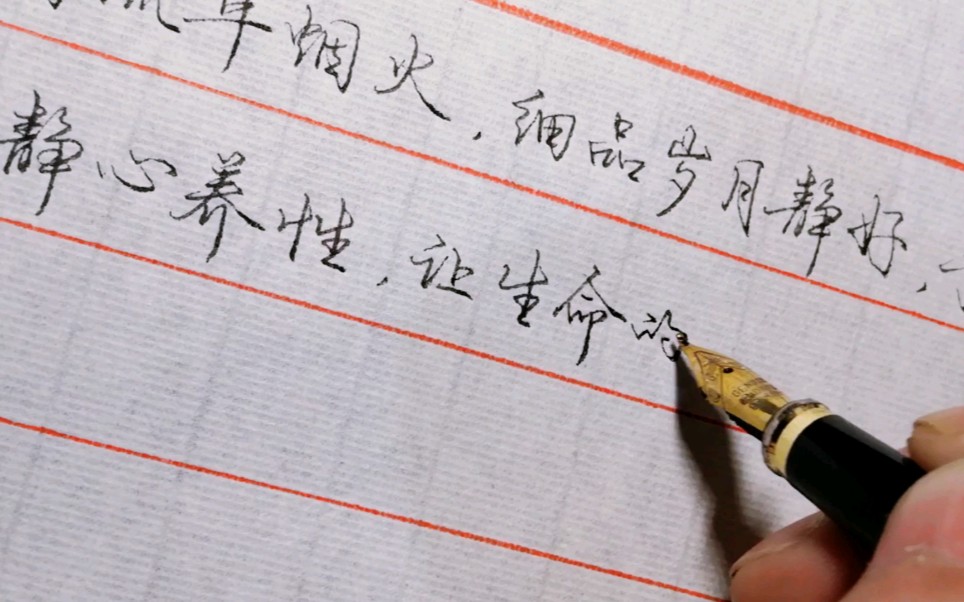 烟火，细品岁月静好，
静心养性，让生命的